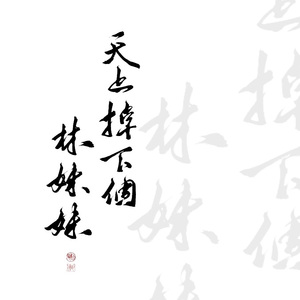 天上掉下個
林妹妹